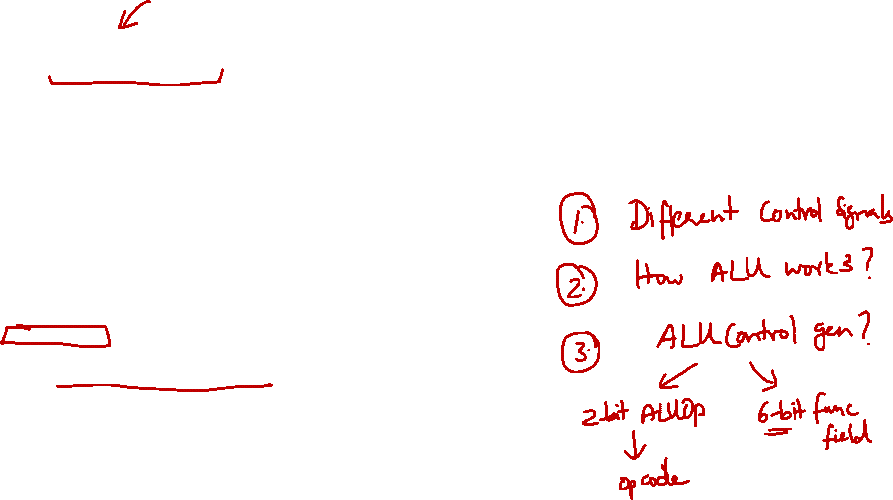 1. Different Control Signals
2. How ALU works?
3. ALU Control gen?
2-bit ALUOp
6-bit func
field
opcode